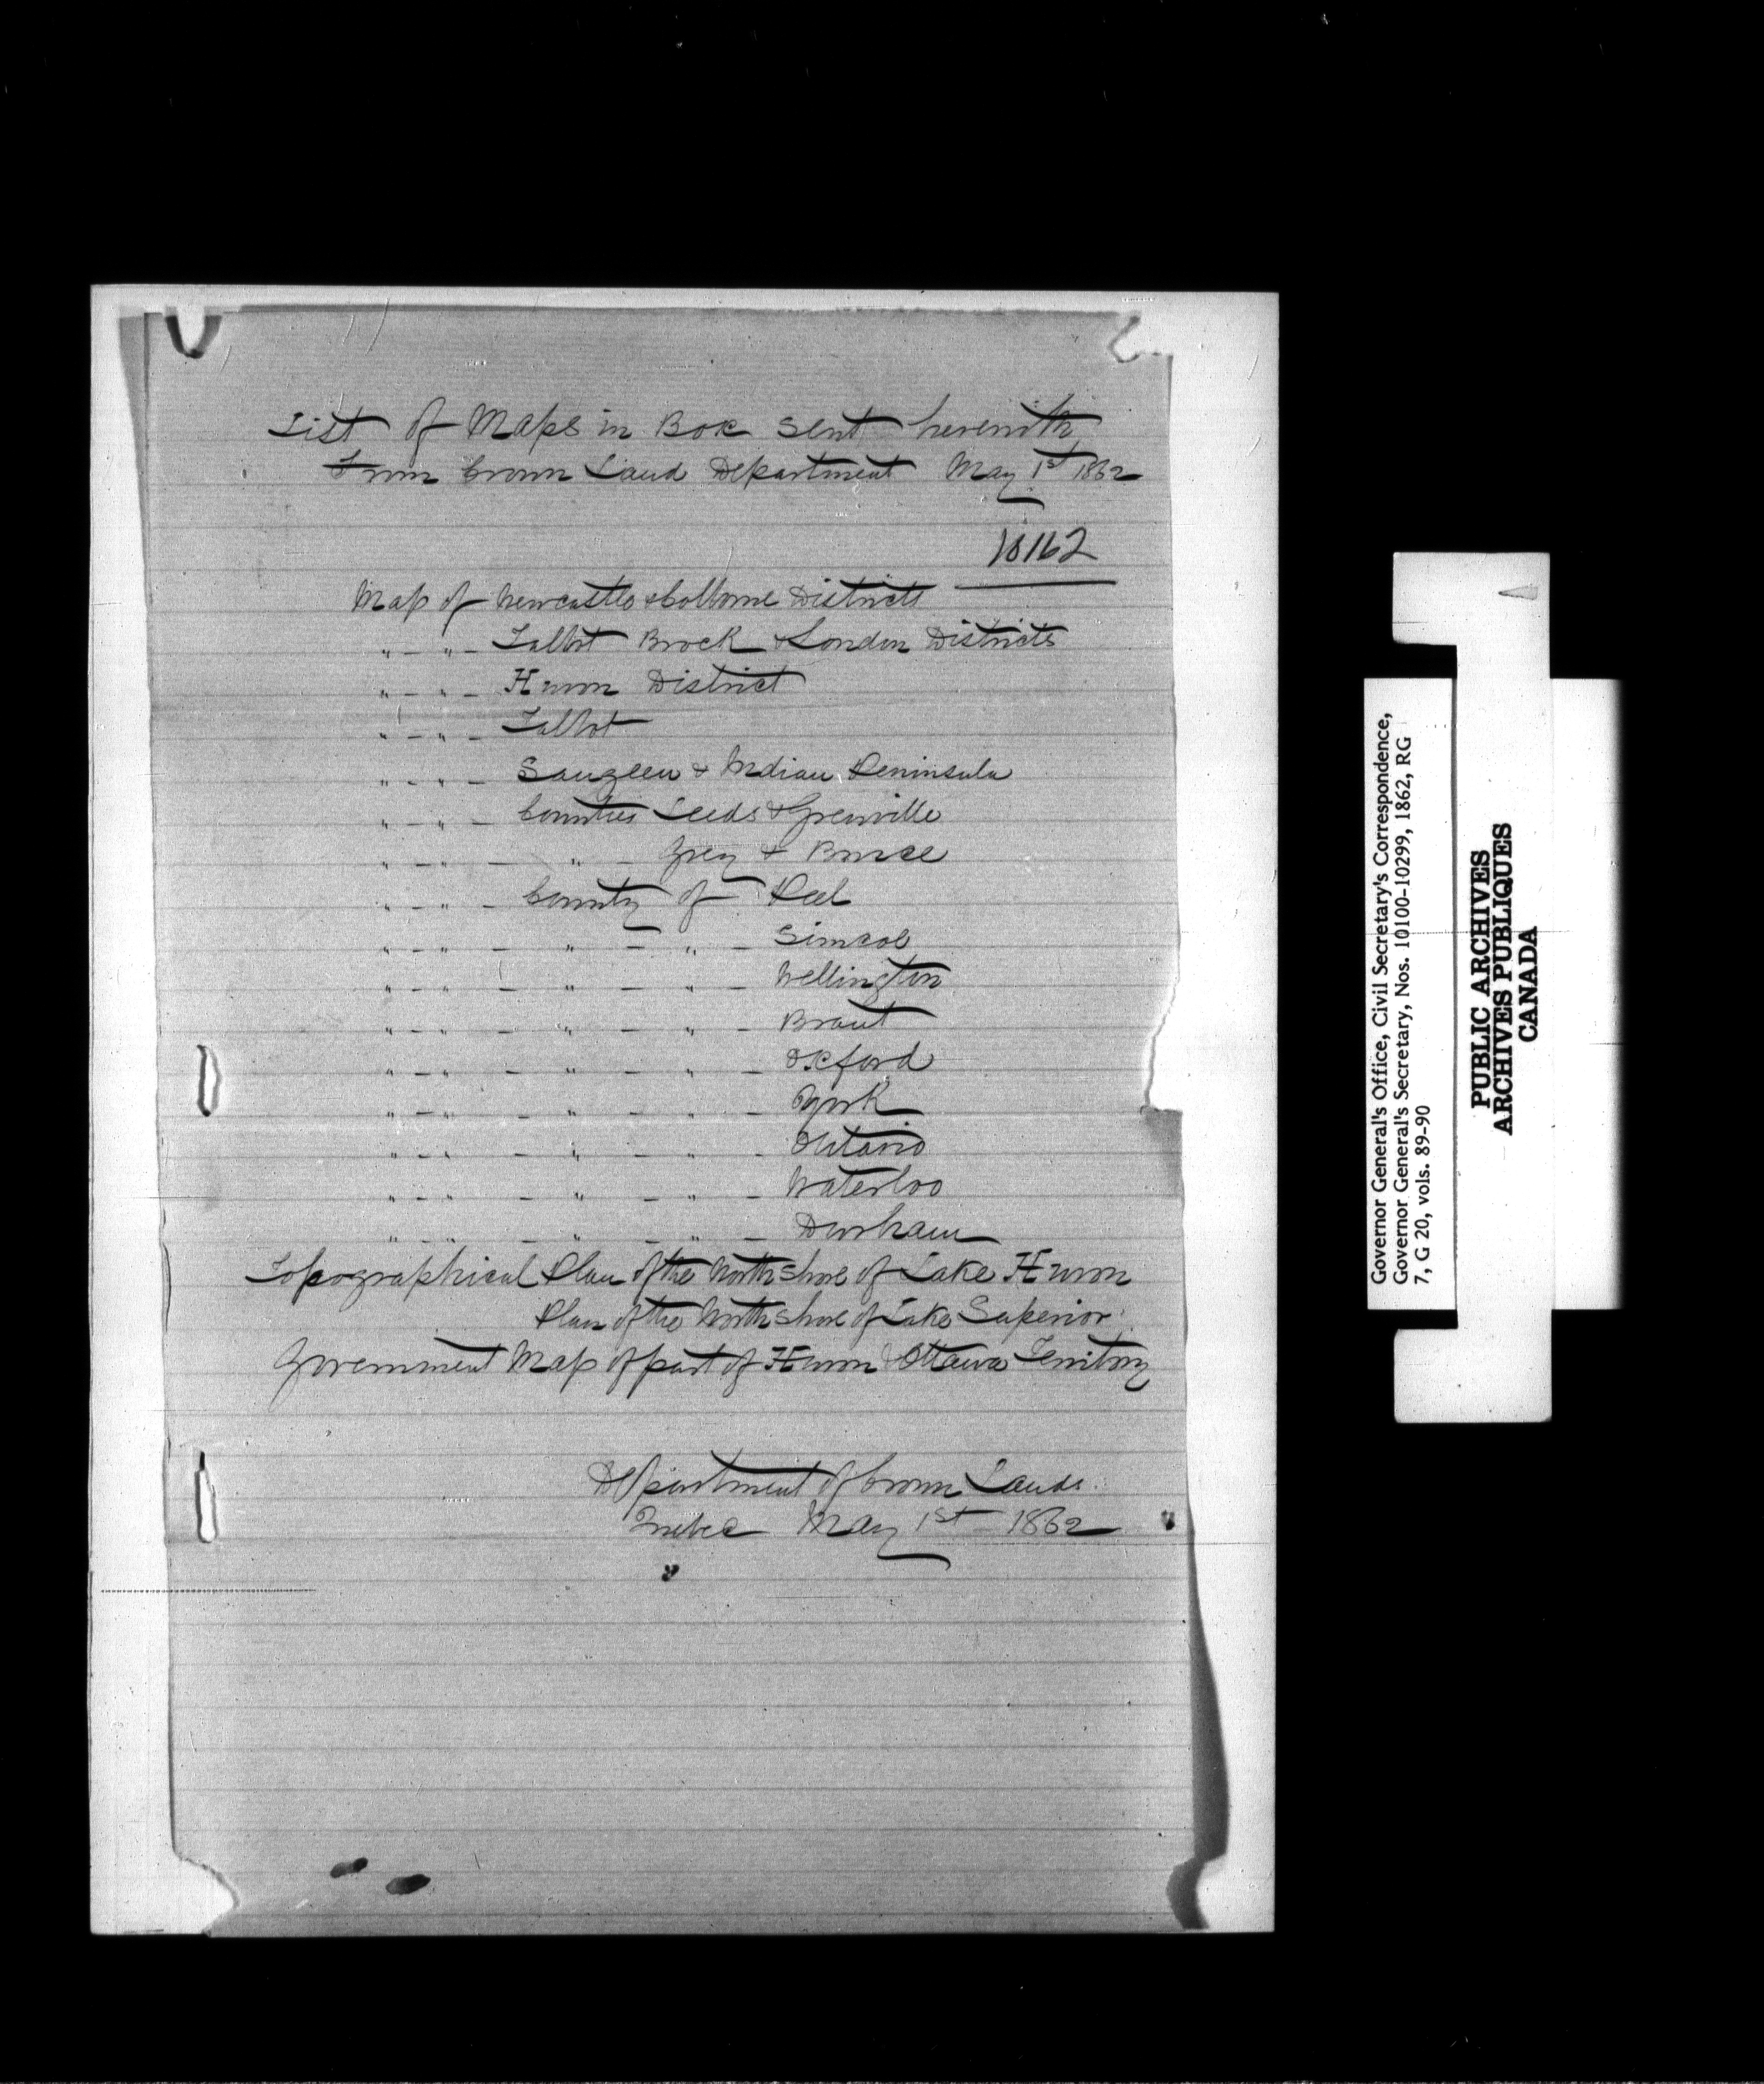 List of Maps in Box sent herewith
From Crown Land Department May 1st 1862
10162
Map of Newcastle & Colborne Districts
" - " - Talbot Brock & London Districts
" - " - Huron District
" - " - Talbot
" - " - Saugeen & Indian Peninsula
" - " - Counties Leeds & Grenville
" - " - " - Grey & Bruce
" - " - County of Peel
" - " - " - " - Simcoe
" - " - " - " - Wellington
" - " - " - " - Brant
" - " - " - " - Oxford
" - " - " - " - York
" - " - " - " - Ontario
" - " - " - " - Waterloo
" - " - " - " - Durham
Topographical Plan of the North shore of Lake Huron
Plan of the North shore of Lake Superior
Government Map of part of Huron & Ottawa Territory
Department of Crown Lands.
Quebec May 1st 1862
Governor General's Office, Civil Secretary's Correspondence,
Governor General's Secretary, Nos. 10100-10299, 1862, RG
7, G 20, vols. 89-90
PUBLIC ARCHIVES
ARCHIVES PUBLIQUES
CANADA